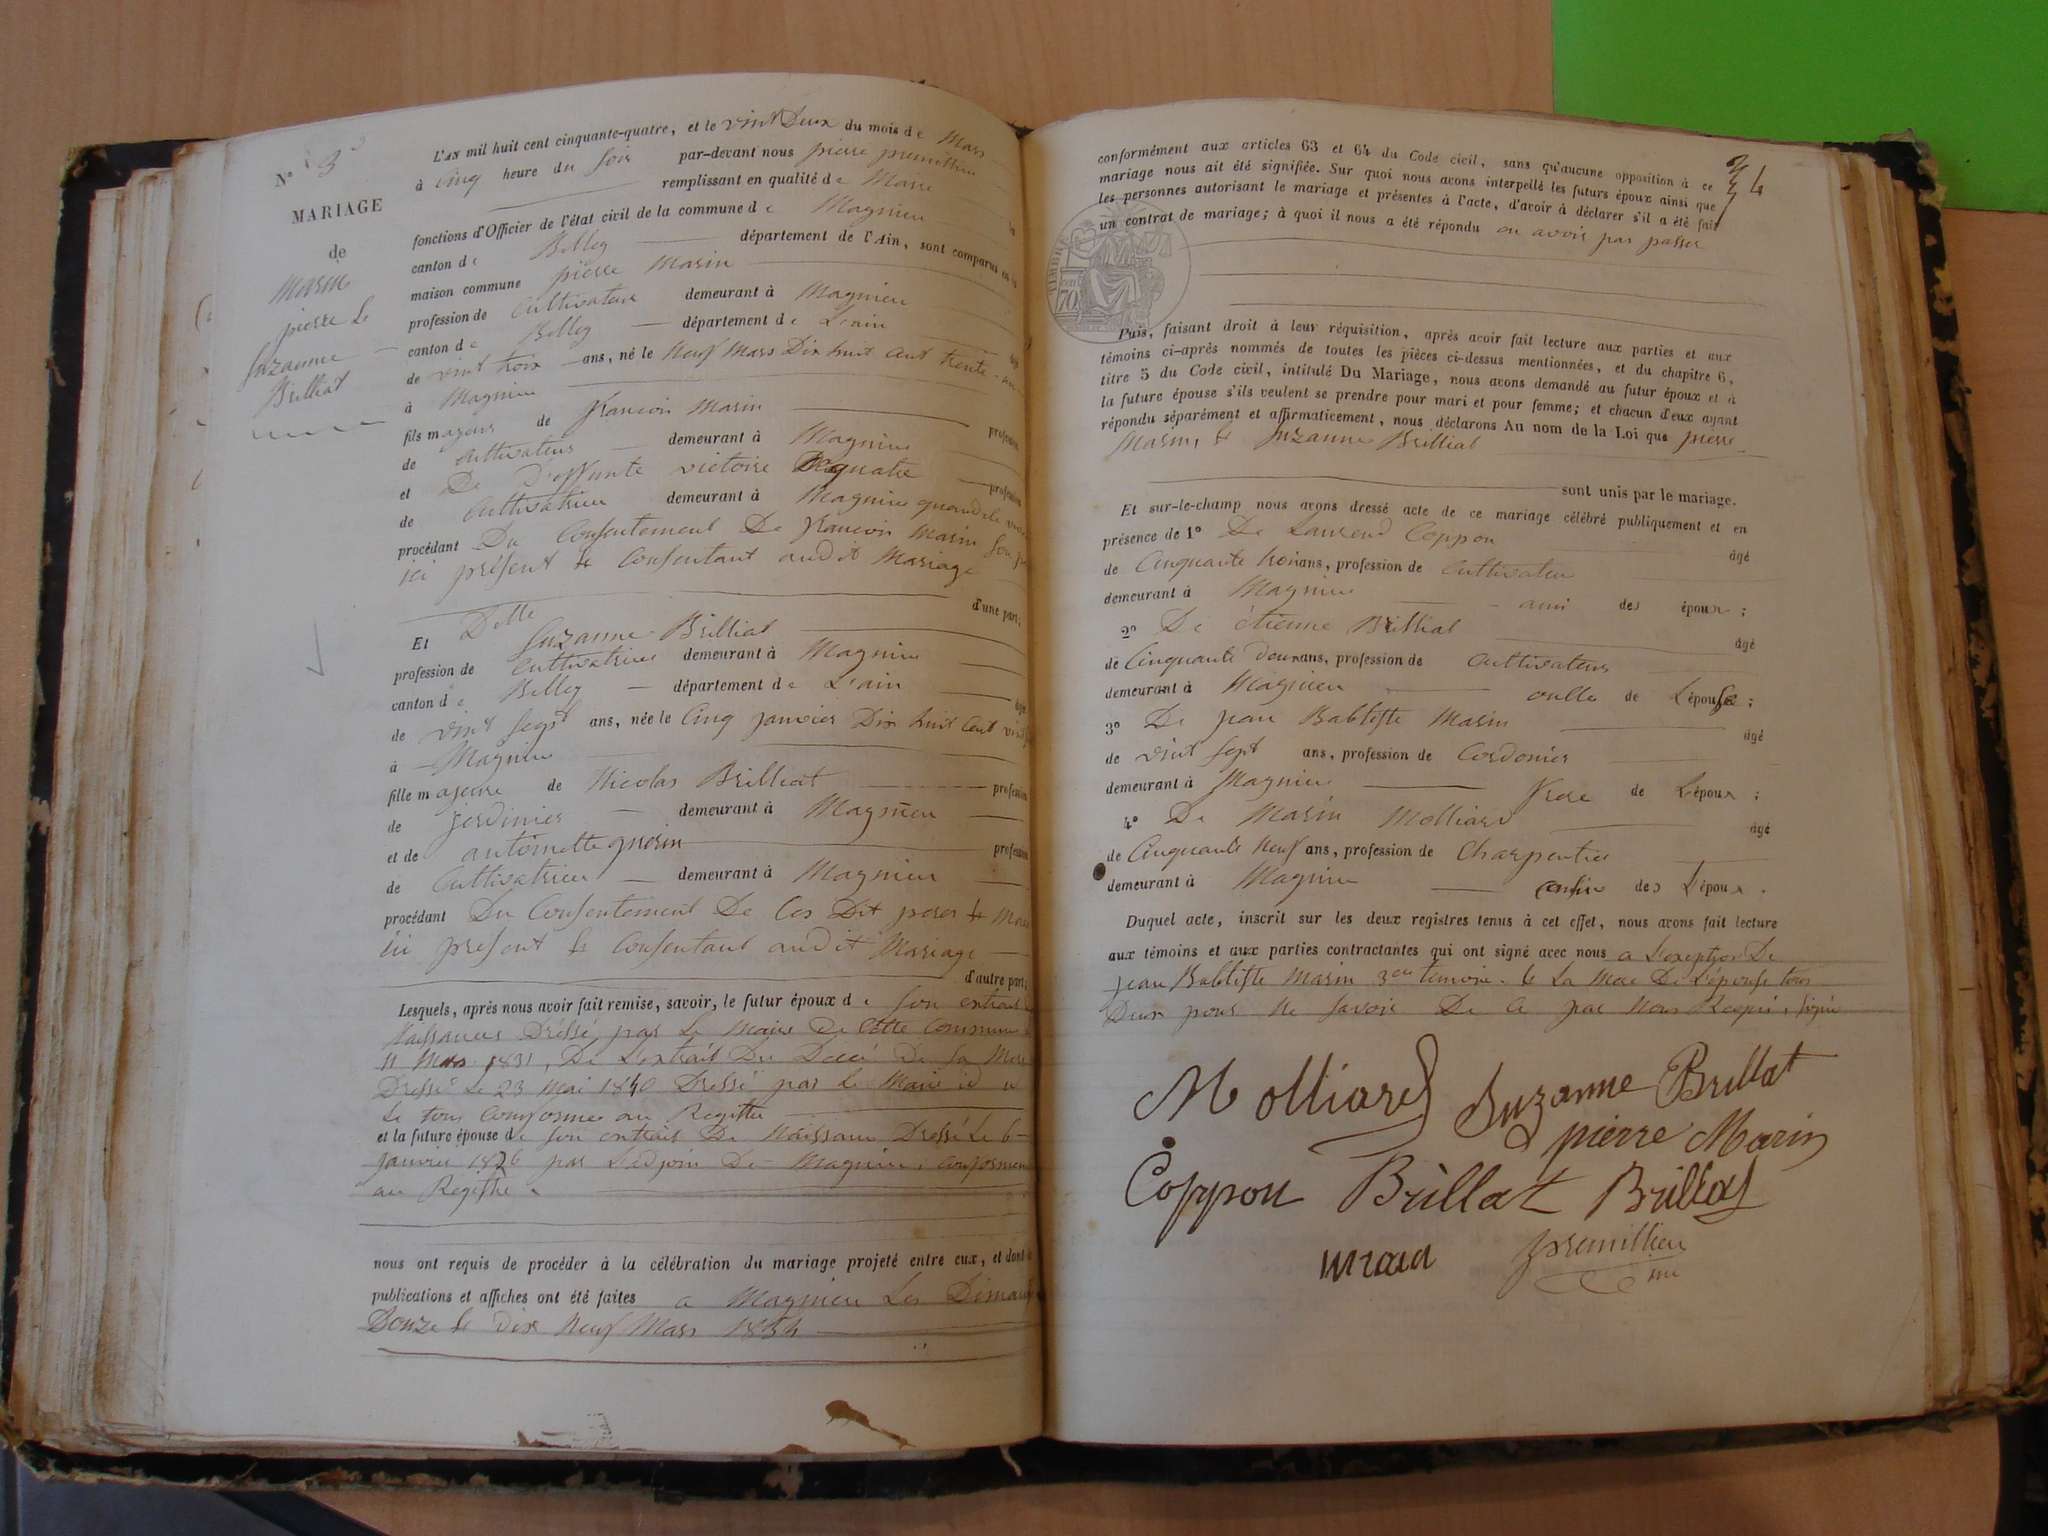 N° 3
MARIAGE
de
Marin
pierre &
Suzanne
Brilliat
L'AN mil huit cent cinquante-quatre, et le vint Deux du mois de Mars
à cinq heure du soir par-devant nous pierre premillieu
remplissant en qualité de Maire
fonctions d'Officier de l'état civil de la commune de Magnieu
canton de Belley département de l'Ain, sont comparus en la
maison commune pierre Marin
profession de Cultivateur demeurant à Magnieu
canton de Belley département de L'ain
de vint trois ans, né le Neuf Mars Dix huit Cent trente-un
à Magnieu
fils majeur de francois Marin profession
de Cultivateur demeurant à Magnieu
et De Deffunte victoire profession
de Cultivatrice demeurant à Magnieu quand elle
procédant Du Consentement De francois Marin son
ici présent & Consentant audit Mariage
d'une part;
Et Delle Suzanne Brilliat
profession de Cultivatrice demeurant à Magnieu
canton de Belley département de L'ain
de vint sept ans, née le Cinq janvier Dix huit Cent
à Magnieu
fille majeure de Nicolas Brilliat profession
de jerdinier demeurant à Magnieu
et de antoinette guerin profession
de Cultivatrice demeurant à Magnieu
procédant Du Consentement De Ces Dit perer &
ici présent & Consentant audit Mariage
d'autre part;
Lesquels, après nous avoir fait remise, savoir, le futur époux de son extrait
Naissances Dréssé par Le Maire De Cette Commune
11 Mars 1831, De L'extrait Du Décé De Sa Mere
Dressé Le 23 Mai 1840 Dressé par Le Maire id
Le tous Conforme au Registre
et la future épouse de son extrait De Naissance Dressé Le 6
janvier 1826 par L'adjoin De Magnieu, Conforme
au Registre.
nous ont requis de procéder à la célébration du mariage projeté entre eux, et dont
publications et affiches ont été faites a Magnieu Les Dimanche
Douze & dix Neuf Mars 1854
conformément aux articles 63 et 64 du Code civil, sans qu'aucune opposition à ce
mariage nous ait été signifiée. Sur quoi nous avons interpellé les futurs époux ainsi que
les personnes autorisant le mariage et présentes à l'acte, d'avoir à déclarer s'il a été fait
un contrat de mariage; à quoi il nous a été répondu en avoir pas passer
TIMBRE
70
Puis, faisant droit à leur réquisition, après avoir fait lecture aux parties et aux
témoins ci-après nommés de toutes les pièces ci-dessus mentionnées, et du chapitre 6,
titre 5 du Code civil, intitulé Du Mariage, nous avons demandé au futur époux et à
la future épouse s'ils veulent se prendre pour mari et pour femme; et chacun d'eux ayant
répondu séparément et affirmativement, nous déclarons Au nom de la Loi que pierre
Marin, & Suzanne Brilliat
sont unis par le mariage.
Et sur-le-champ nous avons dressé acte de ce mariage célébré publiquement et en
présence de 1° De Laurend Coppon âgé
de Cinquante trois ans, profession de Cultivateur
demeurant à Magnieu ami des époux;
2° De étienne Brilliat âgé
de Cinquante deux ans, profession de Cultivateur
demeurant à Magnieu oncle de L'épouse;
3° De jean Babtiste Marin âgé
de vint sept ans, profession de Cordonier
demeurant à Magnieu frere de L'époux;
4° De Marin Molliard âgé
de Cinquante Neuf ans, profession de Charpentier
demeurant à Magnieu de L'époux.
Duquel acte, inscrit sur les deux registres tenus à cet effet, nous avons fait lecture
aux témoins et aux parties contractantes qui ont signé avec nous a L'exeption De
jean Babtiste Marin 3eme temoin. & La Mere De L'épouse tous
Deux pour Ne savoir De Ce par Nous Requi, signé
Molliard Suzanne Brillat
pierre Marin
Coppon Brillat Brillat
premillieu